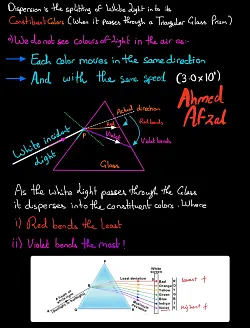 Dispersion is the splitting of White light in to its
Constituent Colors (When it passes through a Triangular Glass Prism)
We do not see colours of light in the air as:-
Each color moves in the same direction
And with the same speed (3.0×10⁸)
Ahmed
Afzal
Actual direction
Red bends
Red
Violet
Violet bends
P
White incident
light
Glass
As the white light passes through the Glass
it disperses into the constituent colors. Where
i) Red bends the Least
ii) Violet bends the most!
White screen
Least deviation
Red
Orange
Yellow
Green
Blue
Indigo
Violet
lowest f
highest f